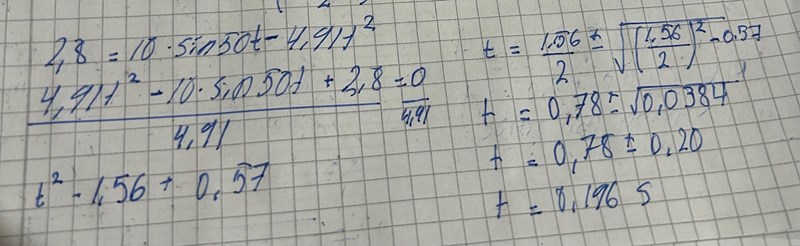 2,8 = 10 · sin50t - 4,91t²
4,91t² - 10 · sin50t + 2,8 = 0
4,91 4,91
t² - 1,56 + 0,57
t = 1,56/2 ± √((1,56/2)² - 0.57
t = 0,78 ± √0,0384
t = 0,78 ± 0,20
t = 0,196 s